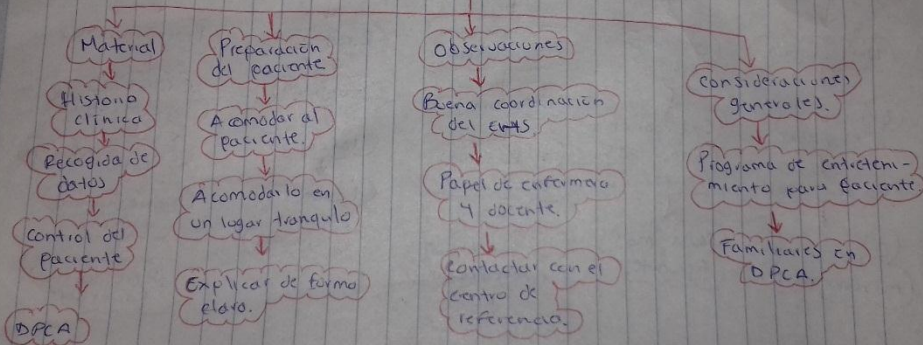 Material
Historia
clínica
Recogida de
datos
Control del
paciente
DPCA
Preparación
del paciente
Acomodar al
paciente.
Acomodarlo en
un lugar tranquilo
Explicar de forma
clara.
Observaciones
Buena coordinación
del
Papel de enfermero
y docente.
Contactar con el
centro de
referencia.
Consideraciones
generales.
Programa de entreteni-
miento para paciente
Familiares en
DPCA.